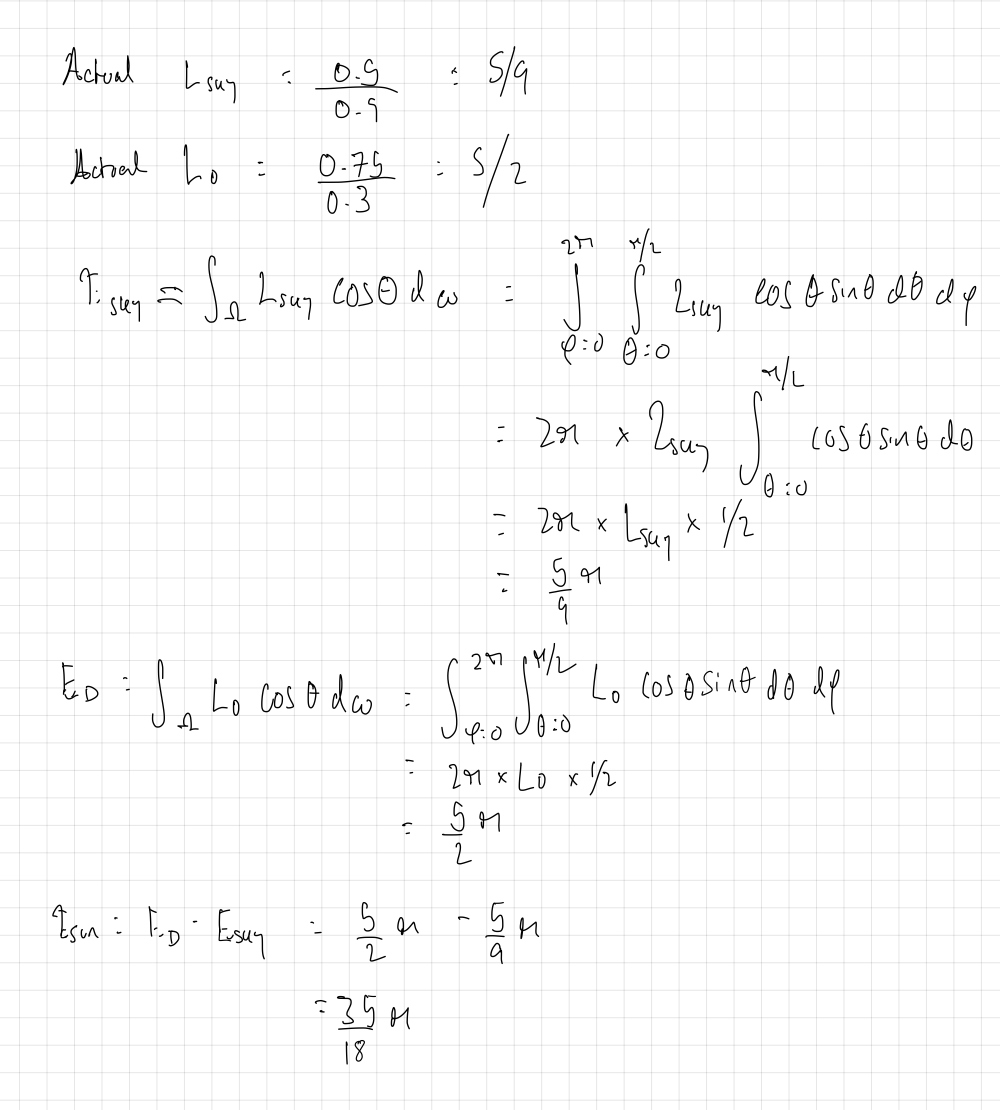 Actual L_sky = 0.5/0.9 = 5/9
Actual L_D = 0.75/0.3 = 5/2
E_sky = ∫_Ω L_sky cosθ dω = ∫_{φ=0}^{2π} ∫_{θ=0}^{π/2} L_sky cosθ sinθ dθ dφ
= 2π × L_sky ∫_{θ=0}^{π/2} cosθ sinθ dθ
= 2π × L_sky × 1/2
= 5/9 π
E_D = ∫_Ω L_D cosθ dω = ∫_{φ=0}^{2π} ∫_{θ=0}^{π/2} L_D cosθ sinθ dθ dφ
= 2π × L_D × 1/2
= 5/2 π
E_sun = E_D - E_sky = 5/2 π - 5/9 π
= 35/18 π